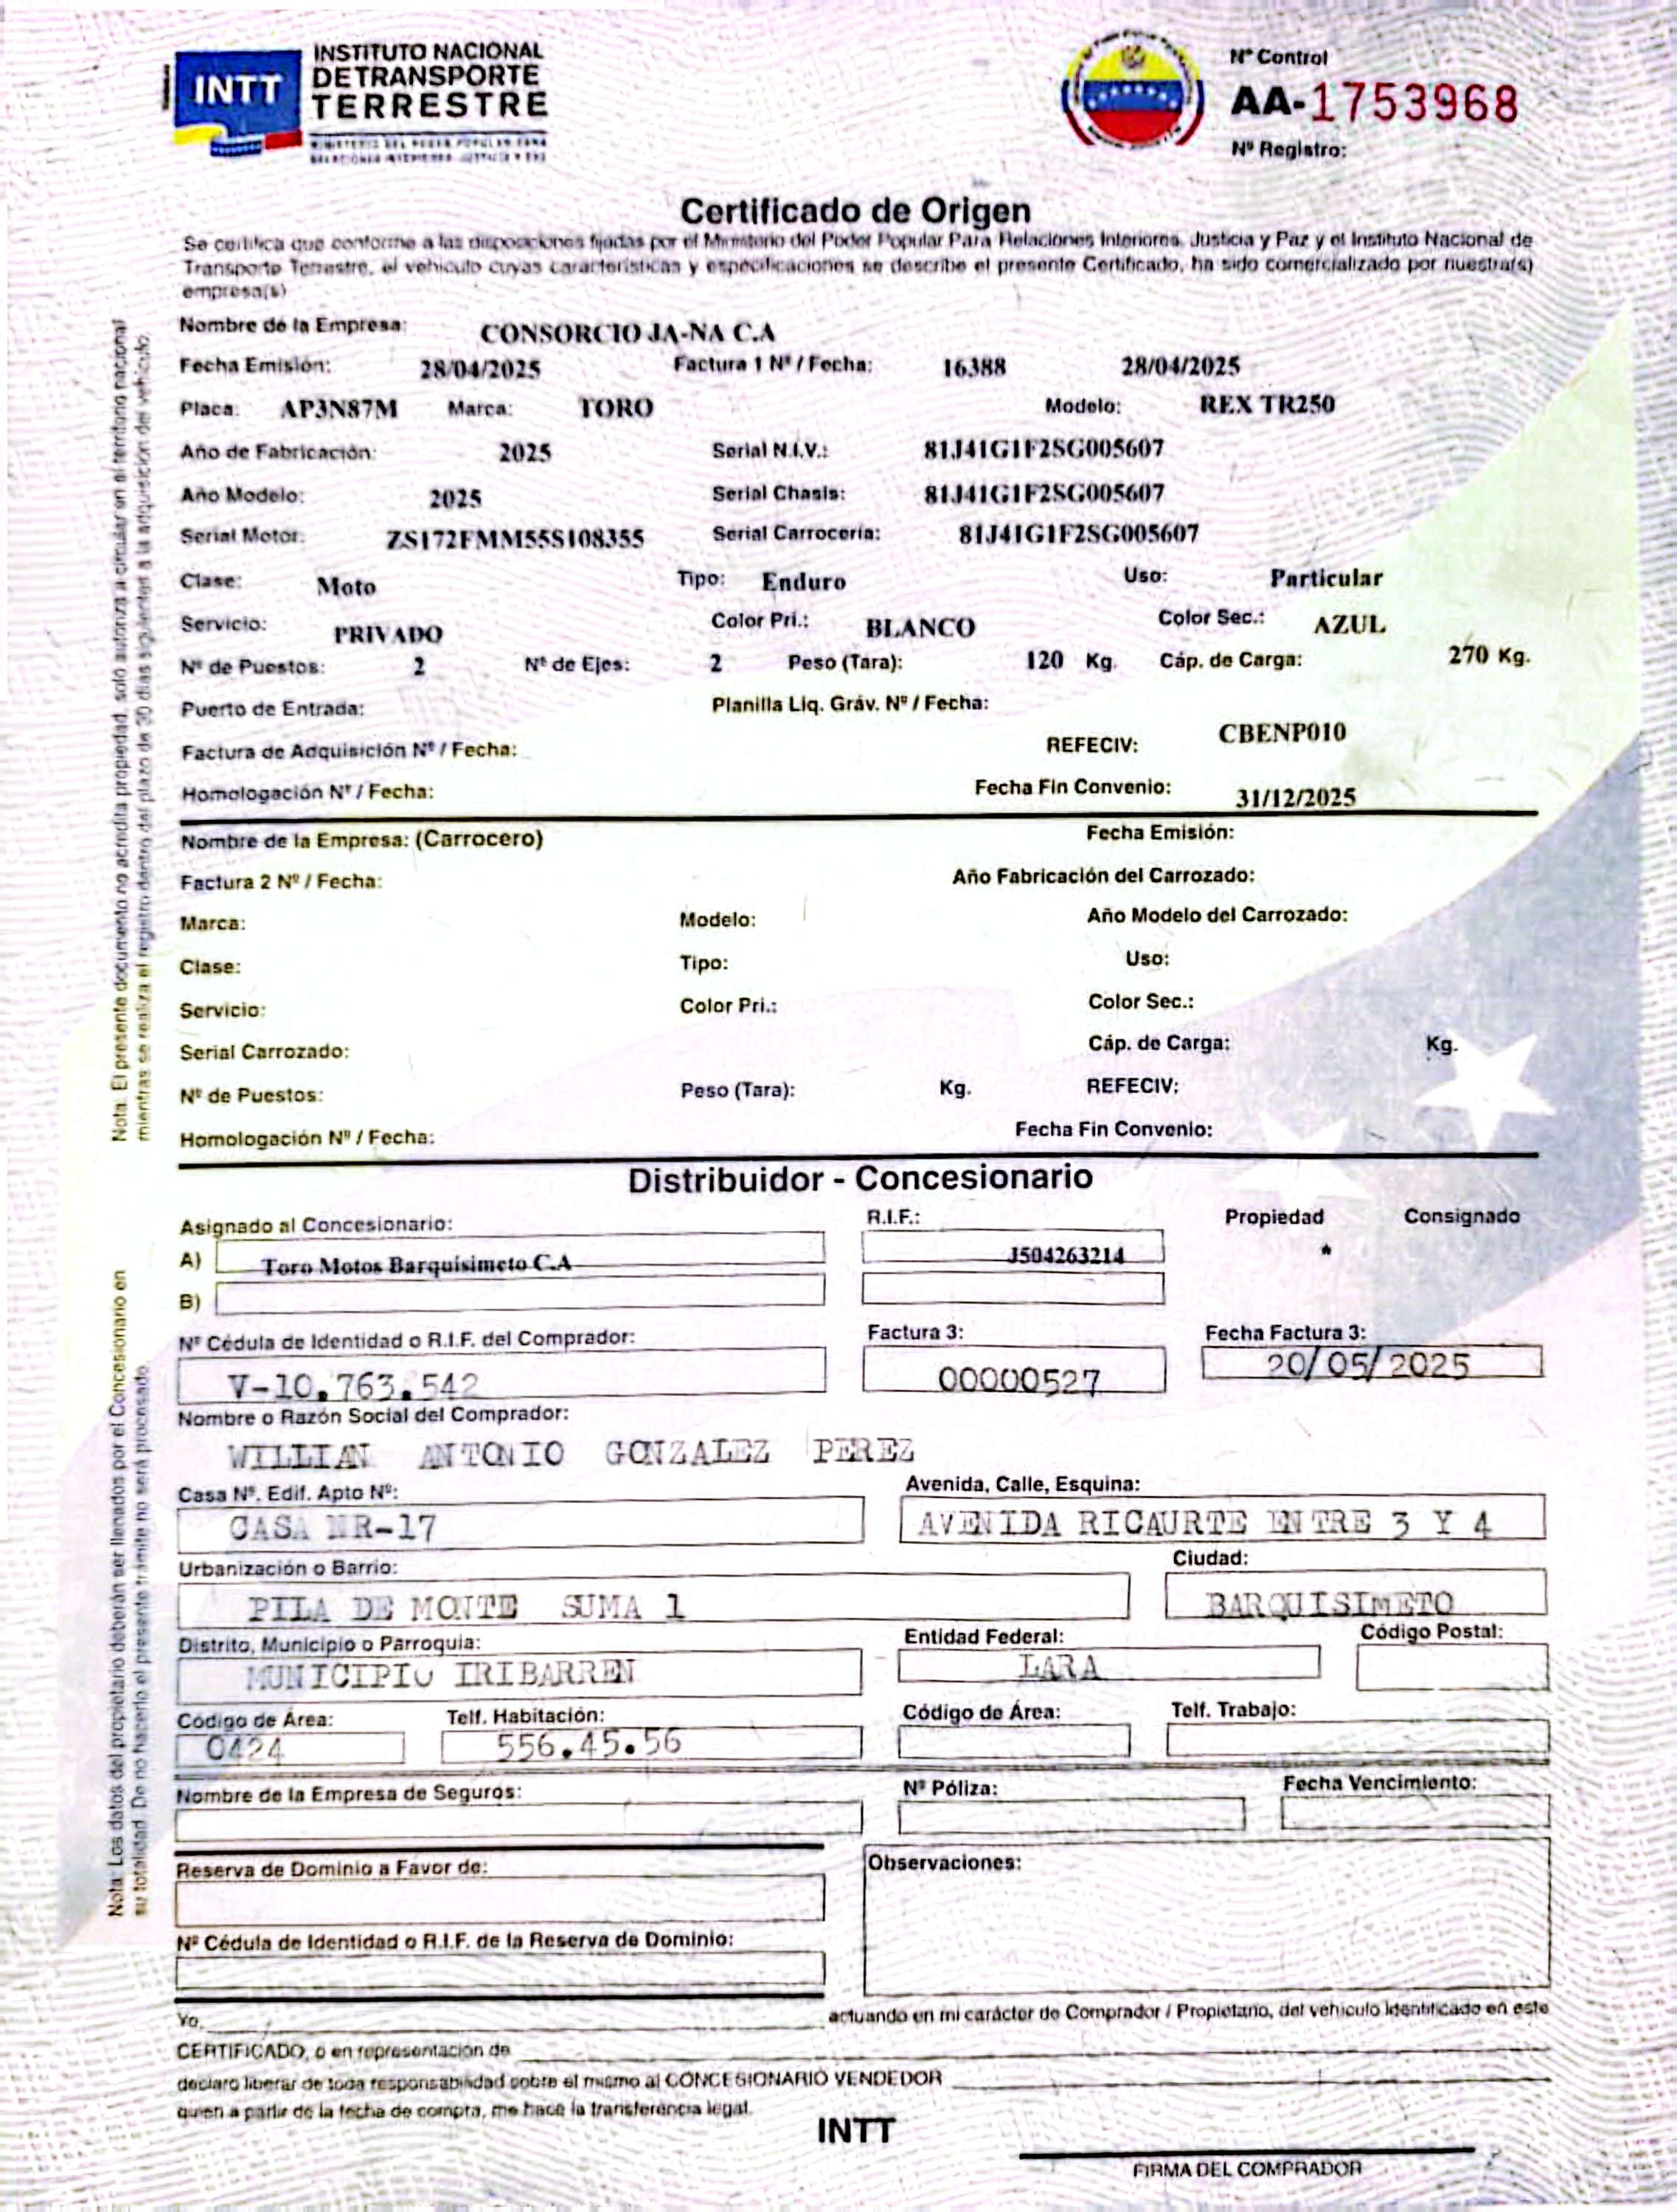 INTT
INSTITUTO NACIONAL
DE TRANSPORTE
TERRESTRE
MINISTERIO DEL PODER POPULAR PARA
RELACIONES INTERIORES JUSTICIA Y PAZ
Nº Control
AA-1753968
Nº Registro:
Certificado de Origen
Se certifica que conforme a las disposiciones fijadas por el Ministerio del Poder Popular Para Relaciones Interiores, Justicia y Paz y el Instituto Nacional de
Transporte Terrestre, el vehículo cuyas características y especificaciones se describe el presente Certificado, ha sido comercializado por nuestra(s)
empresa(s)
Nombre de la Empresa: CONSORCIO JA-NA C.A
Fecha Emisión: 28/04/2025 Factura 1 Nº / Fecha: 16388 28/04/2025
Placa: AP3N87M Marca: TORO Modelo: REX TR250
Año de Fabricación: 2025 Serial N.I.V.: 81J41G1F2SG005607
Año Modelo: 2025 Serial Chasis: 81J41G1F2SG005607
Serial Motor: ZS172FMM55S108355 Serial Carrocería: 81J41G1F2SG005607
Clase: Moto Tipo: Enduro Uso: Particular
Servicio: PRIVADO Color Pri.: BLANCO Color Sec.: AZUL
Nº de Puestos: 2 Nº de Ejes: 2 Peso (Tara): 120 Kg. Cáp. de Carga: 270 Kg.
Puerto de Entrada: Planilla Liq. Gráv. Nº / Fecha:
Factura de Adquisición Nº / Fecha: REFECIV: CBENP010
Homologación Nº / Fecha: Fecha Fin Convenio: 31/12/2025
Nombre de la Empresa: (Carrocero) Fecha Emisión:
Factura 2 Nº / Fecha: Año Fabricación del Carrozado:
Marca: Modelo: Año Modelo del Carrozado:
Clase: Tipo: Uso:
Servicio: Color Pri.: Color Sec.:
Serial Carrozado: Cáp. de Carga: Kg.
Nº de Puestos: Peso (Tara): Kg. REFECIV:
Homologación Nº / Fecha: Fecha Fin Convenio:
Nota: El presente documento no acredita propiedad, solo autoriza a circular en el territorio nacional
mientras se realiza el registro dentro del plazo de 30 días siguientes a la adquisición del vehículo.
Distribuidor - Concesionario
Asignado al Concesionario: R.I.F.: Propiedad Consignado
A) Toro Motos Barquisimeto C.A J504263214 *
B)
Nº Cédula de Identidad o R.I.F. del Comprador: Factura 3: Fecha Factura 3:
V-10.763.542 00000527 20/05/2025
Nombre o Razón Social del Comprador:
WILLIAN ANTONIO GONZALEZ PEREZ
Casa Nº. Edif. Apto Nº: Avenida, Calle, Esquina:
CASA NR-17 AVENIDA RICAURTE ENTRE 3 Y 4
Urbanización o Barrio: Ciudad:
PILA DE MONTE SUMA 1 BARQUISIMETO
Distrito, Municipio o Parroquia: Entidad Federal: Código Postal:
MUNICIPIO IRIBARREN LARA
Código de Área: Telf. Habitación: Código de Área: Telf. Trabajo:
0424 556.45.56
Nombre de la Empresa de Seguros: Nº Póliza: Fecha Vencimiento:
Reserva de Dominio a Favor de: Observaciones:
Nº Cédula de Identidad o R.I.F. de la Reserva de Dominio:
Nota: Los datos del propietario deberán ser llenados por el Concesionario en
su totalidad. De no hacerlo el presente trámite no será procesado
Yo, actuando en mi carácter de Comprador / Propietario, del vehículo identificado en este
CERTIFICADO, o en representación de
declaro liberar de toda responsabilidad sobre el mismo al CONCESIONARIO VENDEDOR
quien a partir de la fecha de compra, me hace la transferencia legal.
INTT
FIRMA DEL COMPRADOR